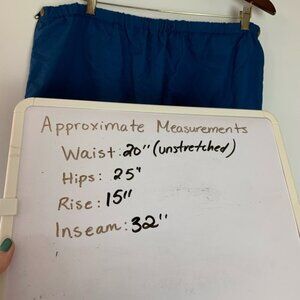 Approximate Measurements
Waist: 20" (unstretched)
Hips: 25"
Rise: 15"
Inseam: 32"